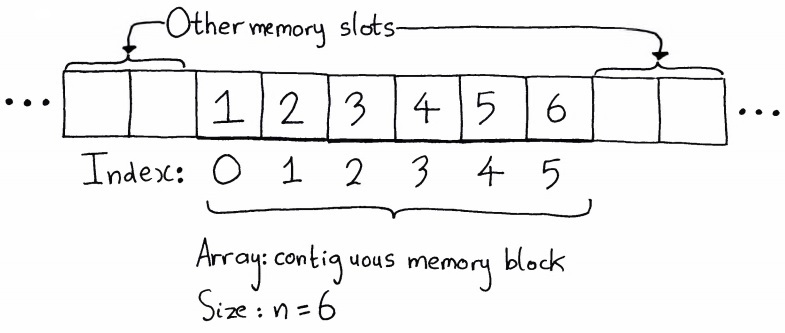 Other memory slots
... 1 2 3 4 5 6 ...
Index: 0 1 2 3 4 5
Array: contiguous memory block
Size: n = 6